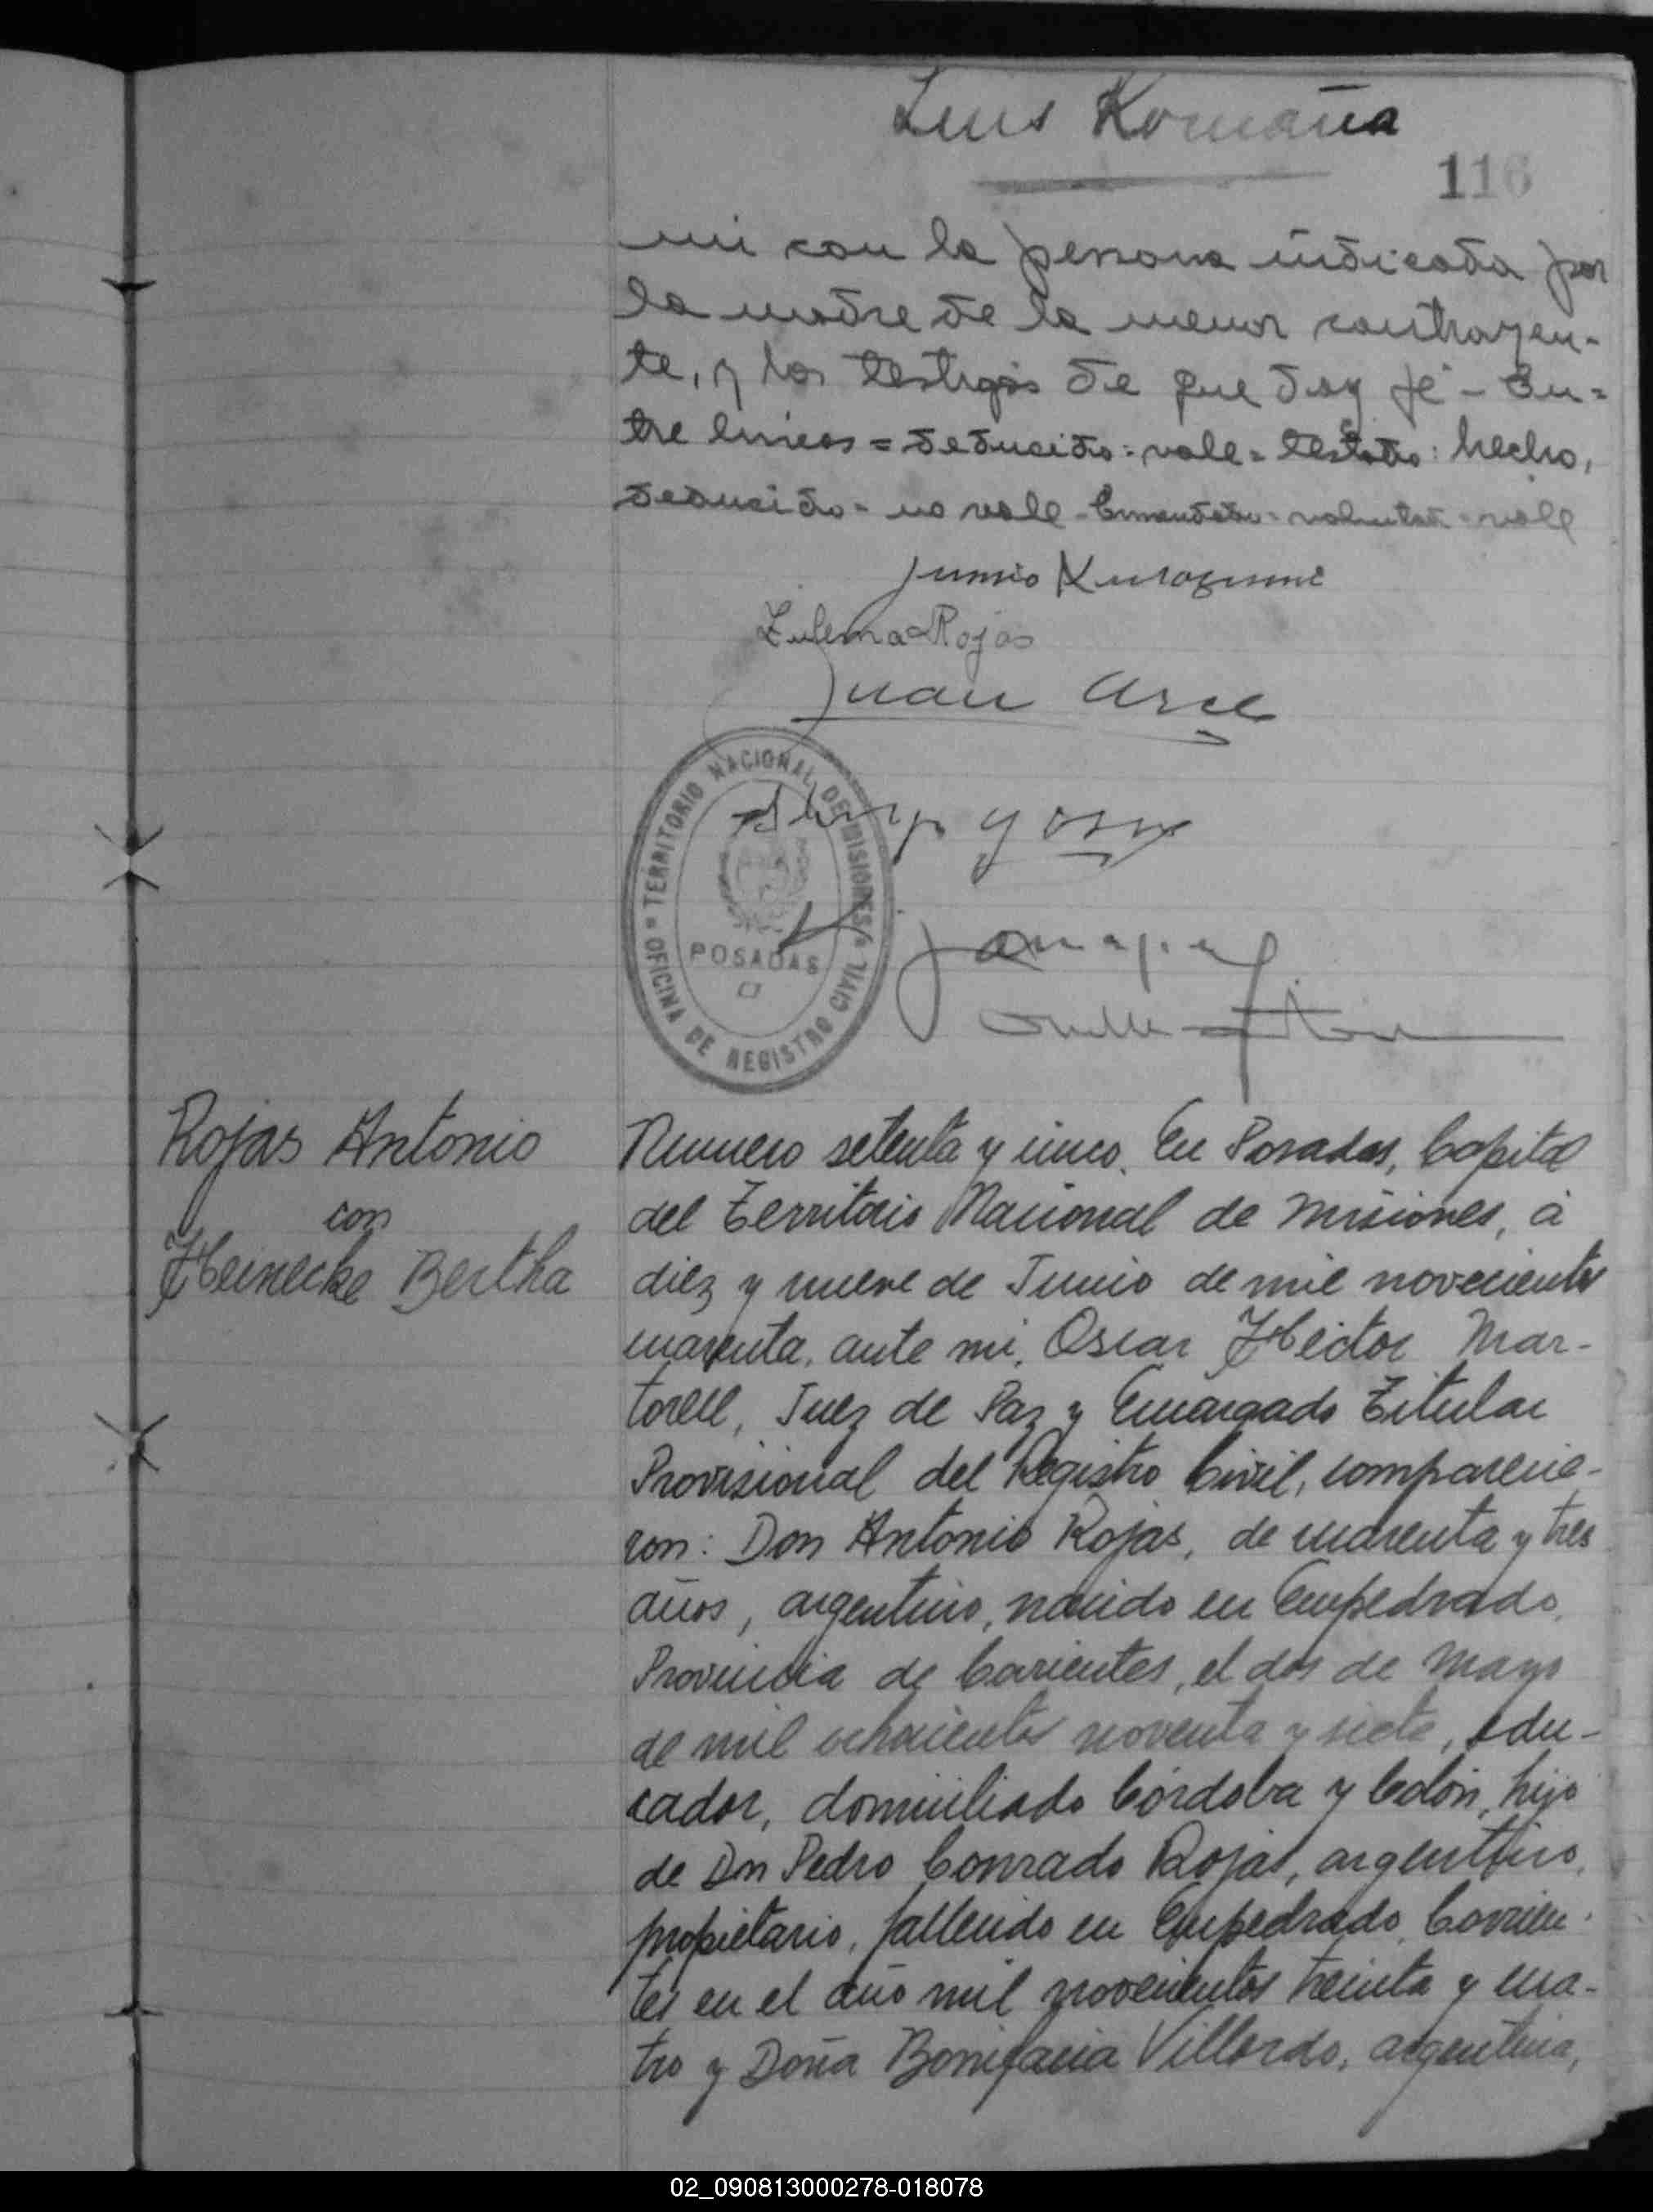 Luis Romaña
116
mi con la persona indicada por
la madre de la menor contrayen-
te, y los testigos de que doy fé - En=
tre lineas = deducido: vale = testado: hecho,
deducido = no vale - Enmendado = voluntad = vale
Junio Kurozumi
Zulema Rojas
Juan Arce
TERRITORIO NACIONAL DE MISIONES
OFICINA DE REGISTRO CIVIL
POSADAS
Rojas Antonio
con
Heinecke Bertha
Numero setenta y cinco. En Posadas, Capital
del Territorio Nacional de Misiones, á
diez y nueve de Junio de mil novecientos
cuarenta, ante mi, Oscar Héctor Mar-
torell, Juez de Paz y Encargado Titular
Provisional del Registro Civil, comparecie-
ron: Don Antonio Rojas, de cuarenta y tres
años, argentino, nacido en Empedrado,
Provincia de Corrientes, el dos de Mayo
de mil ochocientos noventa y siete, edu-
cador, domiciliado Córdoba y Colón, hijo
de Dn Pedro Conrado Rojas, argentino,
propietario, fallecido en Empedrado, Corrien-
tes en el año mil novecientos treinta y cua-
tro y Doña Bonifacia Villordo, argentina,
02_090813000278-018078